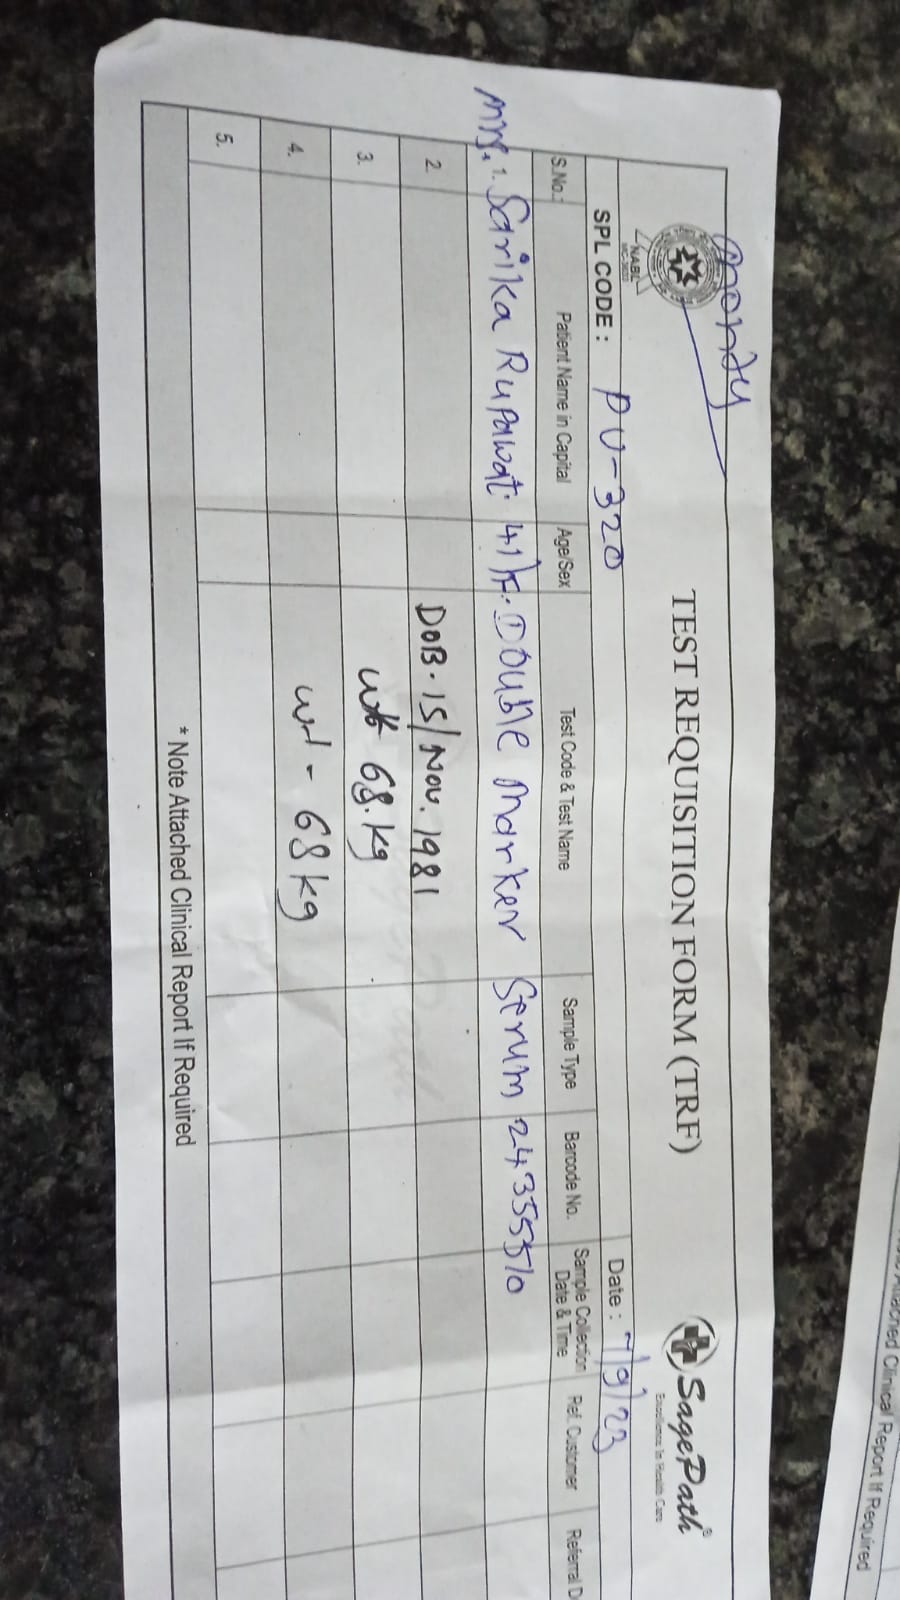 mondy
NABL
TEST REQUISITION FORM (TRF)
SagePath®
Excellence In Health Care
SPL CODE : PU-320
Date : 7/9/23
S.No.: Patient Name in Capital Age/Sex Test Code & Test Name Sample Type Barcode No. Sample Collection Date & Time Ref. Customer Referral D
Mrs. 1. Sarika Rupawat. 41/F. Double Marker Serum 24355510
2. DOB. 15/Nov. 1981
3. wt 68.kg
4. wt - 68 kg
5.
* Note Attached Clinical Report If Required
Attached Clinical Report If Required